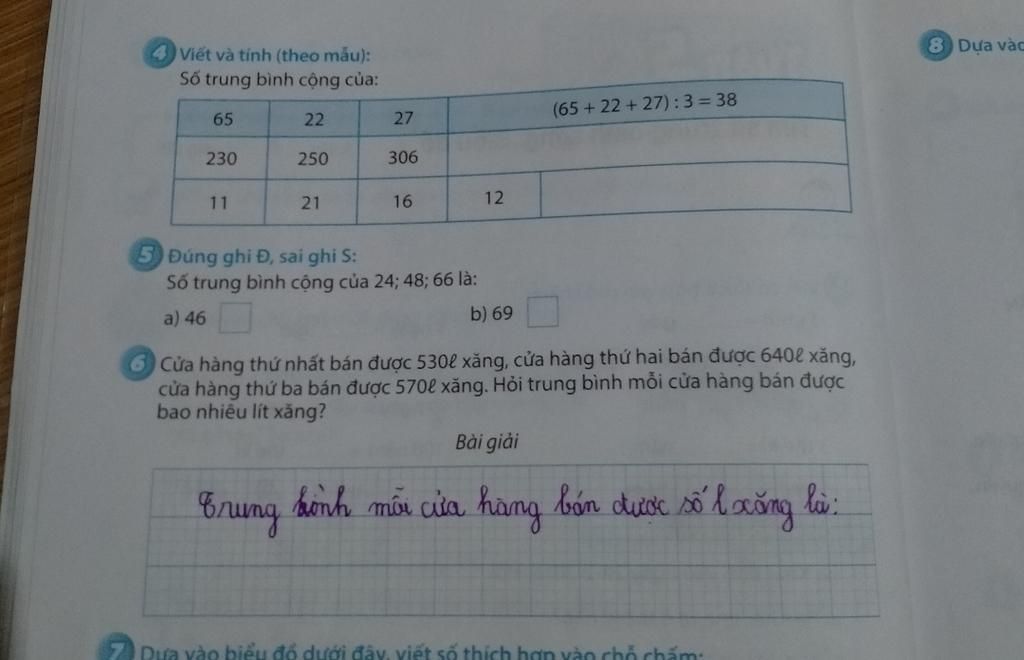 4 Viết và tính (theo mẫu):
Số trung bình cộng của:
65 22 27 (65 + 22 + 27) : 3 = 38
230 250 306
11 21 16 12
5 Đúng ghi Đ, sai ghi S:
Số trung bình cộng của 24; 48; 66 là:
a) 46 b) 69
6 Cửa hàng thứ nhất bán được 530ℓ xăng, cửa hàng thứ hai bán được 640ℓ xăng,
cửa hàng thứ ba bán được 570ℓ xăng. Hỏi trung bình mỗi cửa hàng bán được
bao nhiêu lít xăng?
Bài giải
Trung bình mỗi cửa hàng bán được số l xăng là:
7 Dựa vào biểu đồ dưới đây, viết số thích hợp vào chỗ chấm:
8 Dựa vào